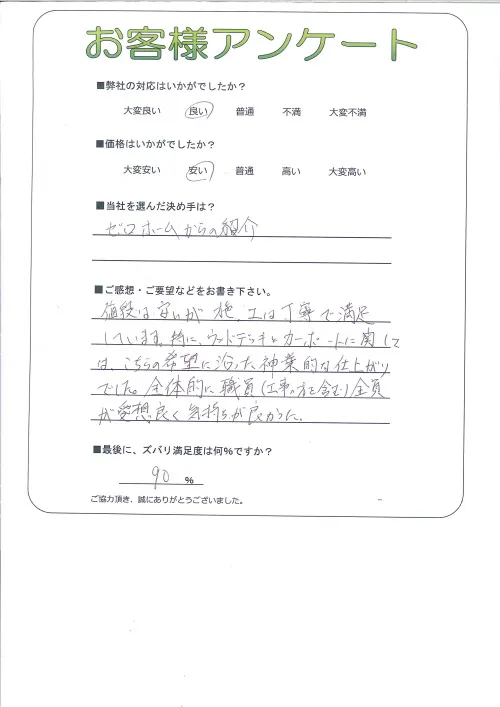 お客様アンケート
■弊社の対応はいかがでしたか?
大変良い 良い 普通 不満 大変不満
■価格はいかがでしたか?
大変安い 安い 普通 高い 大変高い
■当社を選んだ決め手は?
ゼロホームからの紹介
■ご感想・ご要望などをお書き下さい。
値段は安いが施工は丁寧で満足
しています。特に、ウッドデッキとカーポートに関して
は、こちらの希望に沿った神業的な仕上がり
でした。全体的に職員(工事の方を含む)全員
が愛想良く気持ちが良かった。
■最後に、ズバリ満足度は何%ですか?
90 %
ご協力頂き、誠にありがとうございました。